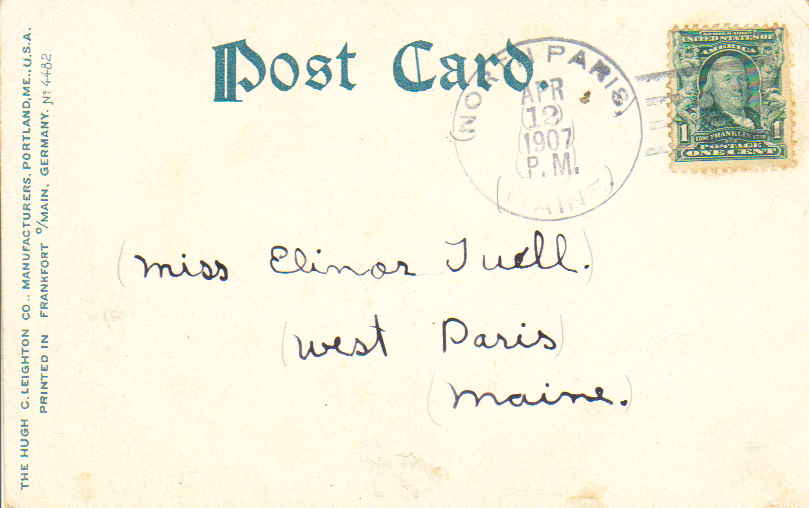 Post Card.
NORTH PARIS,
APR
12
1907
P.M.
MAINE
UNITED STATES OF
AMERICA
1 FRANKLIN 1
POSTAGE
ONE CENT
Miss Elinor Tuell.
West Paris
Maine.
THE HUGH C. LEIGHTON CO., MANUFACTURERS, PORTLAND, ME., U.S.A.
PRINTED IN FRANKFORT O/MAIN, GERMANY. No 4482